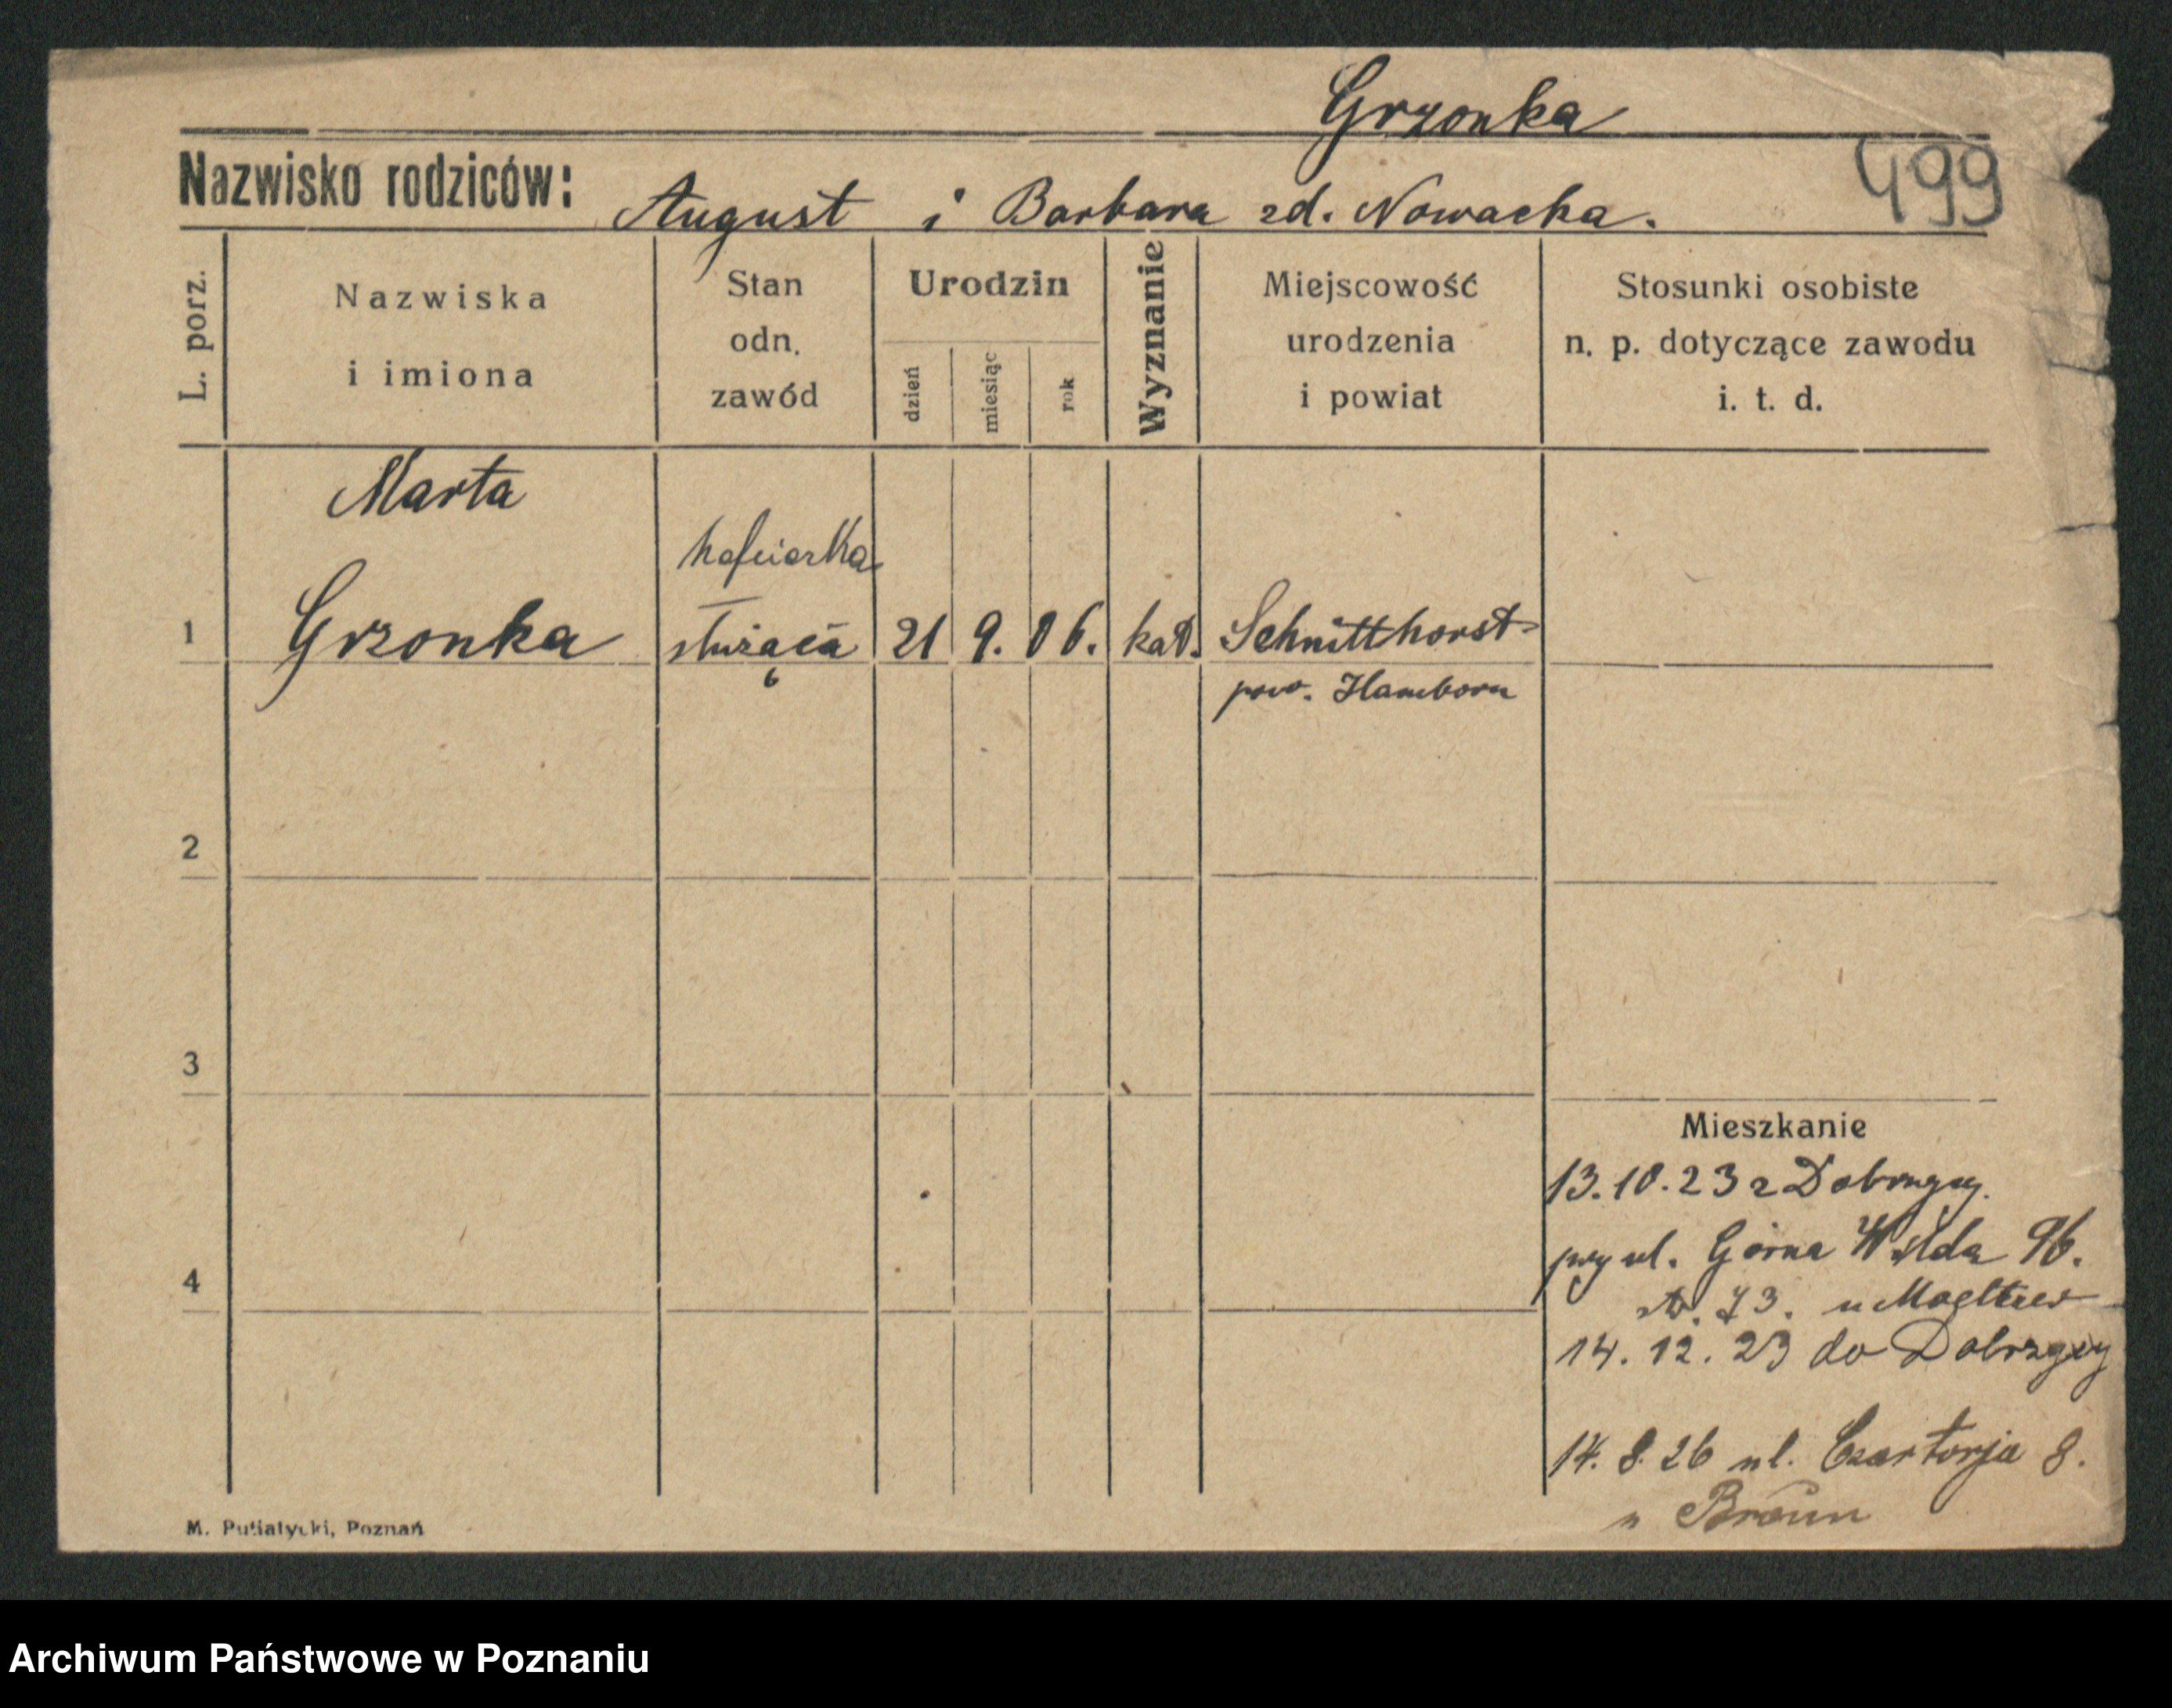 Grzonka
499
Nazwisko rodziców: August i Barbara zd. Nowacka.
L. porz.
Nazwiska
i imiona
Stan
odn.
zawód
Urodzin
dzień
miesiąc
rok
Wyznanie
Miejscowość
urodzenia
i powiat
Stosunki osobiste
n. p. dotyczące zawodu
i. t. d.
Marta
hafciarka
1 Grzonka służąca 21 9. 06. kat. Schmitthorst
pow. Hamborn
2
3
Mieszkanie
13.10.23 z Dobrzycy.
przy ul. Górna Wilda 96.
4
73. u
14. 12. 23 do Dobrzycy
14. 8. 26 ul. Czartorja 8.
u Braun
M. Putiatycki, Poznań
Archiwum Państwowe w Poznaniu